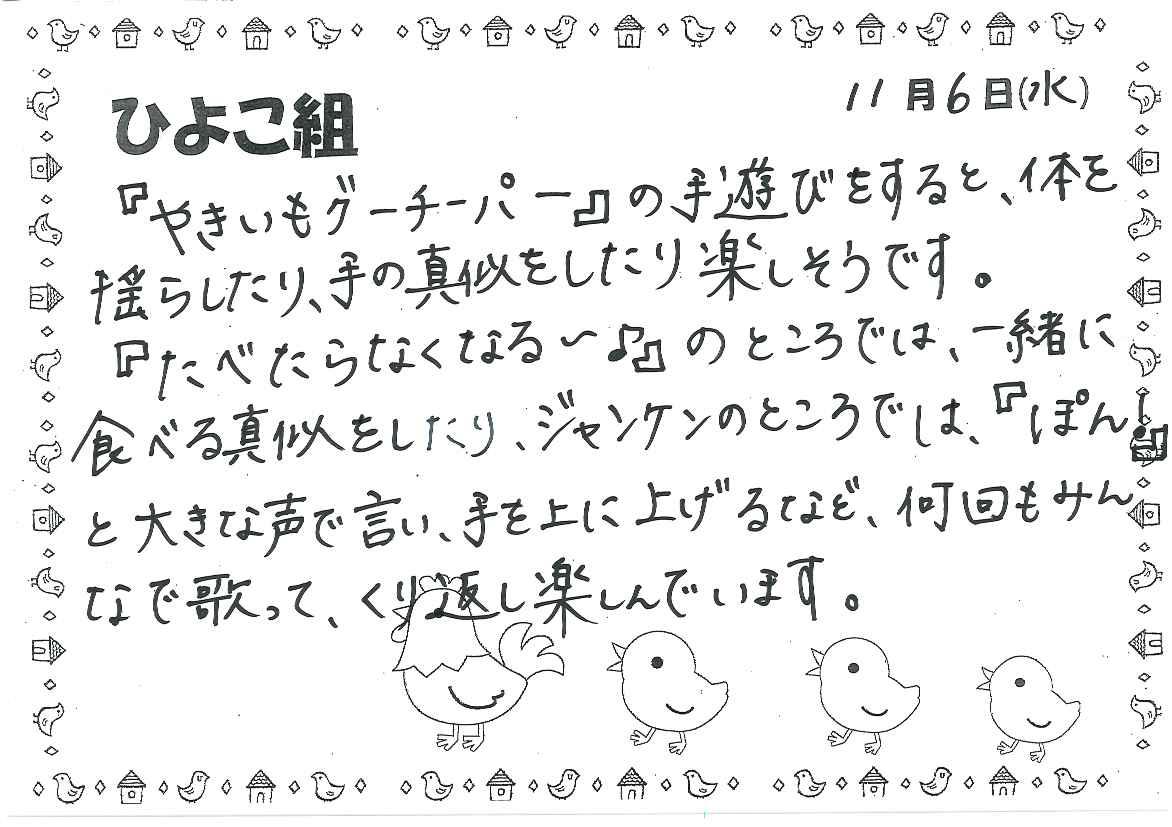 ひよこ組
11月6日(水)
『やきいもグーチーパー』の手遊びをすると、体を
揺らしたり、手の真似をしたり楽しそうです。
『たべたらなくなる〜♪』のところでは、一緒に
食べる真似をしたり、ジャンケンのところでは、『ぽん!』
と大きな声で言い、手を上に上げるなど、何回もみん
なで歌って、くり返し楽しんでいます。